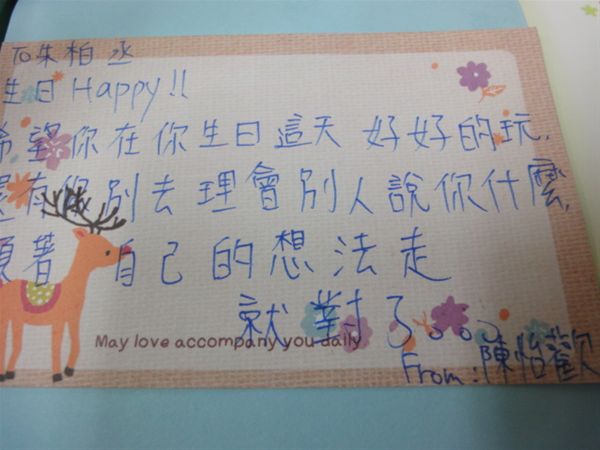 To朱柏丞
生日Happy!!
希望你在你生日這天 好好的玩,
還有你別去理會別人說你什麼,
順著 自己的想法走
就對了。。。
May love accompany you daily
From:陳怡歡